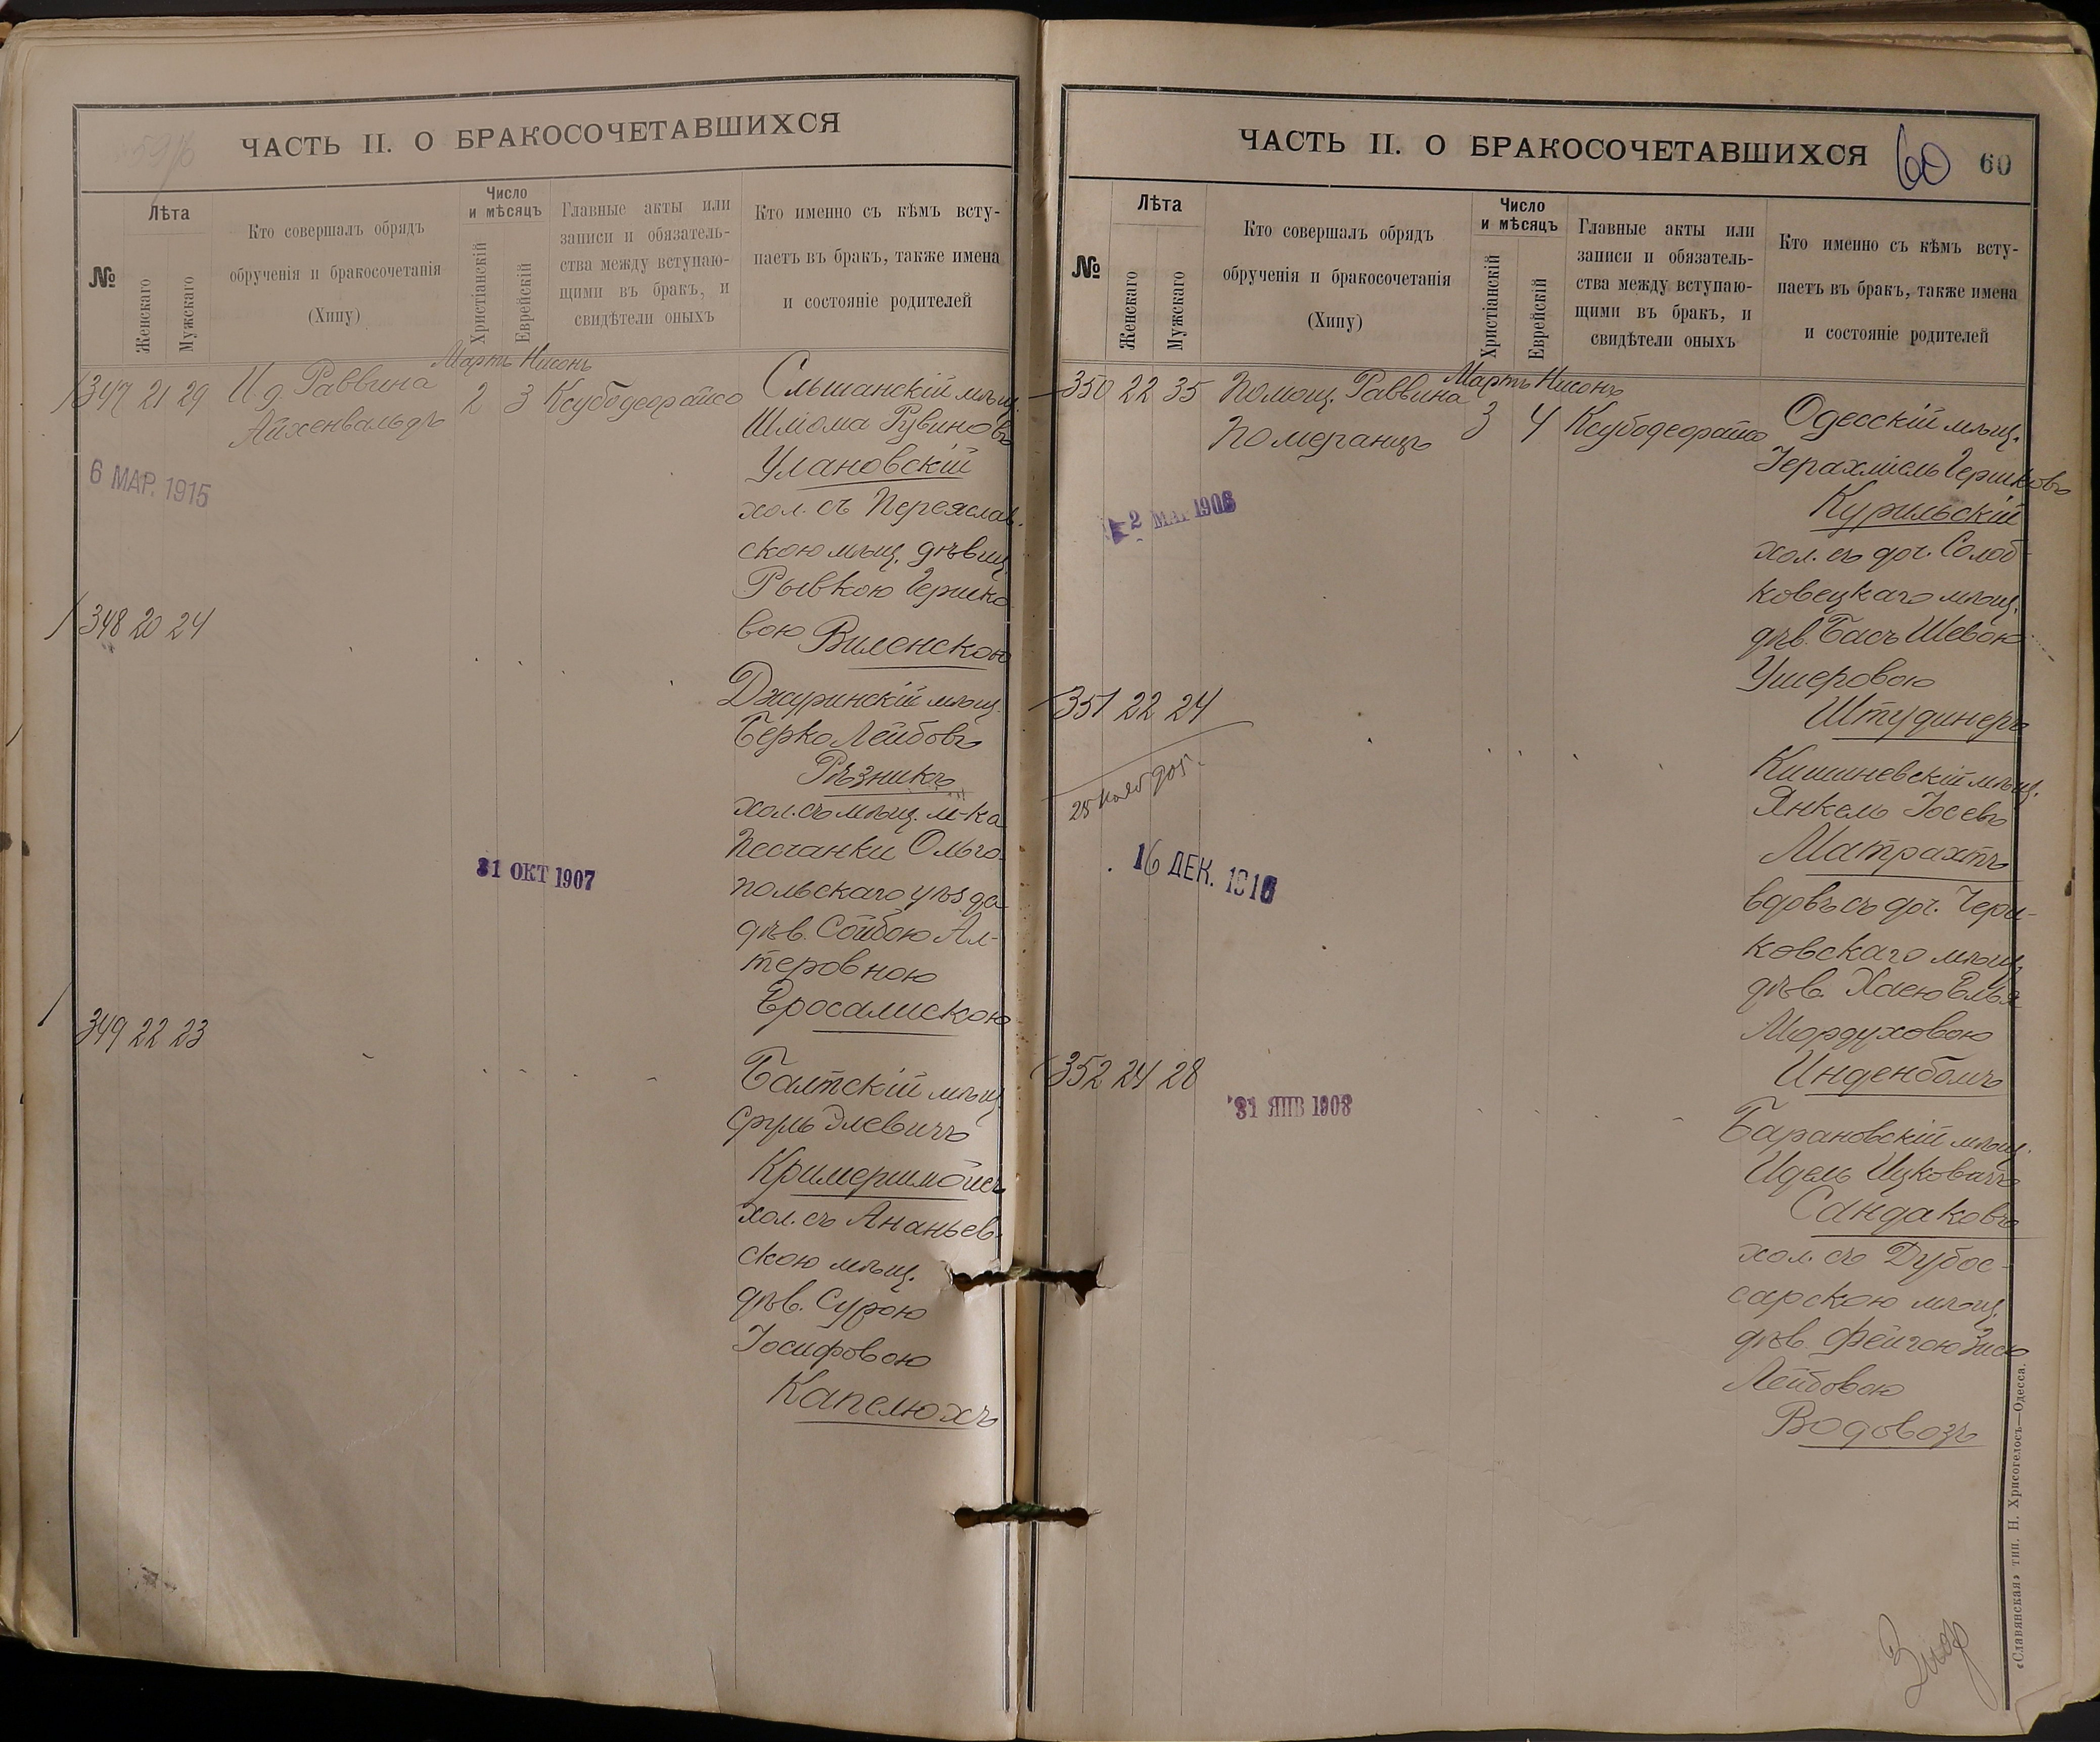 ЧАСТЬ II. О БРАКОСОЧЕТАВШИХСЯ
№
Лѣта
Женскаго
Мужскаго
Кто совершалъ обрядъ
обрученія и бракосочетанія
(Хипу)
Число
и мѣсяцъ
Христіанскій
Еврейскій
Главные акты или
записи и обязатель-
ства между вступаю-
щими въ бракъ, и
свидѣтели оныхъ
Кто именно съ кѣмъ всту-
паетъ въ бракъ, также имена
и состояніе родителей
Мартъ Нисонъ
347 21 29 И. д. Раввина
Айхенвальдъ
2 3 Ксубодеорайсо
Слышанскій мѣщ.
Шлома Рувиновъ
Улановскій
хол. съ Переяслав-
скою мѣщ. дѣвиц.
Рывкою Гершко-
вою Виленскою
6 МАР. 1915
348 20 24
Джуринскій мѣщ.
Берко Лейбовъ
Рѣзникъ
хол. съ мѣщ. м-ка
Песчанки Ольго-
польскаго уѣзда
дѣв. Сойбою Ал-
теровною
Еросалискою
31 ОКТ 1907
349 22 23
Балтскій мѣщ.
Сруль Элевичъ
Кримершмойсъ
хол. съ Ананьев-
скою мѣщ.
дѣв. Сурою
Іосифовою
Капелюхъ
ЧАСТЬ II. О БРАКОСОЧЕТАВШИХСЯ
60 60
№
Лѣта
Женскаго
Мужскаго
Кто совершалъ обрядъ
обрученія и бракосочетанія
(Хипу)
Число
и мѣсяцъ
Христіанскій
Еврейскій
Главные акты или
записи и обязатель-
ства между вступаю-
щими въ бракъ, и
свидѣтели оныхъ
Кто именно съ кѣмъ всту-
паетъ въ бракъ, также имена
и состояніе родителей
Мартъ Нисонъ
350 22 35 Помощ. Раввина
Померанцъ
3 4 Ксубодеорайсо
Одесскій мѣщ.
Іерахміель Гершковъ
Курильскій
хол. съ доч. Солоб-
ковецкаго мѣщ.
дѣв. Бась Шевою
Ушеровою
Штудинеръ
2 МАР 1908
351 22 24
Кишиневскій мѣщ.
Янкель Іосевъ
Матрахтъ
вдовъ съ доч. Чери-
ковскаго мѣщ.
дѣв. Хаею Элья
Мордуховою
Инденбомъ
25 нояб 905.
16 ДЕК. 1916
352 24 28
31 ЯНВ 1908
Барановскій мѣщ.
Идель Ицковичъ
Сандаковъ
хол. съ Дубос-
сарскою мѣщ.
дѣв. Фейгою Зися
Лейбовою
Водовозъ
«Славянская» тип. Н. Хрисогелосъ—Одесса.